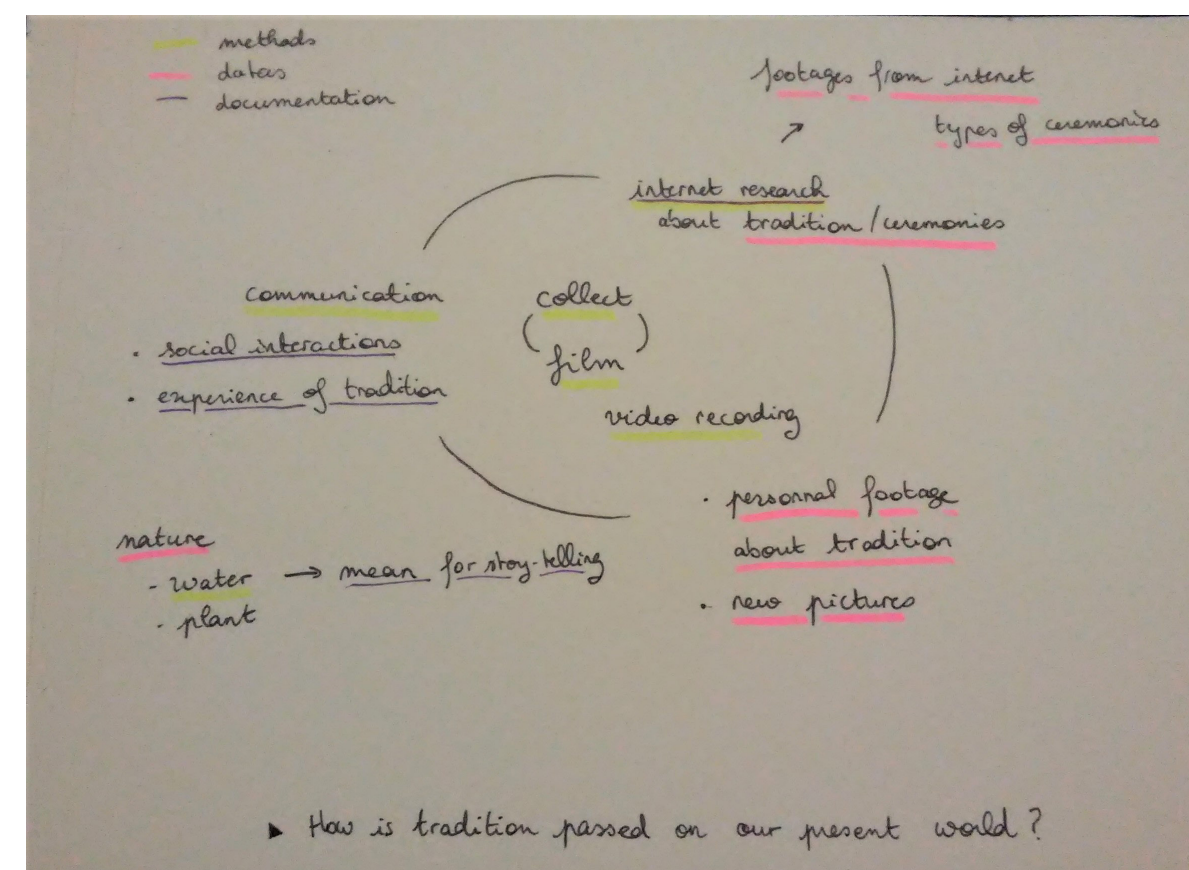 methods
datas
documentation
footages from internet
types of ceremonies
internet research
about tradition/ceremonies
communication
• social interactions
• experience of tradition
collect
film
video recording
• personnal footage
about tradition
• new pictures
nature
- water → mean for stoy-telling
- plant
▶ How is tradition passed on our present world?